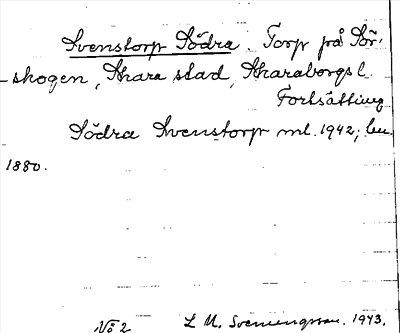 Svenstorp Södra. Torp på Sör-
skogen, Skara stad, Skaraborgs l.
Fortsättning
Södra Svenstorp ml. 1942; lm
1880.
No 2 L M. Svenungsson. 1943.